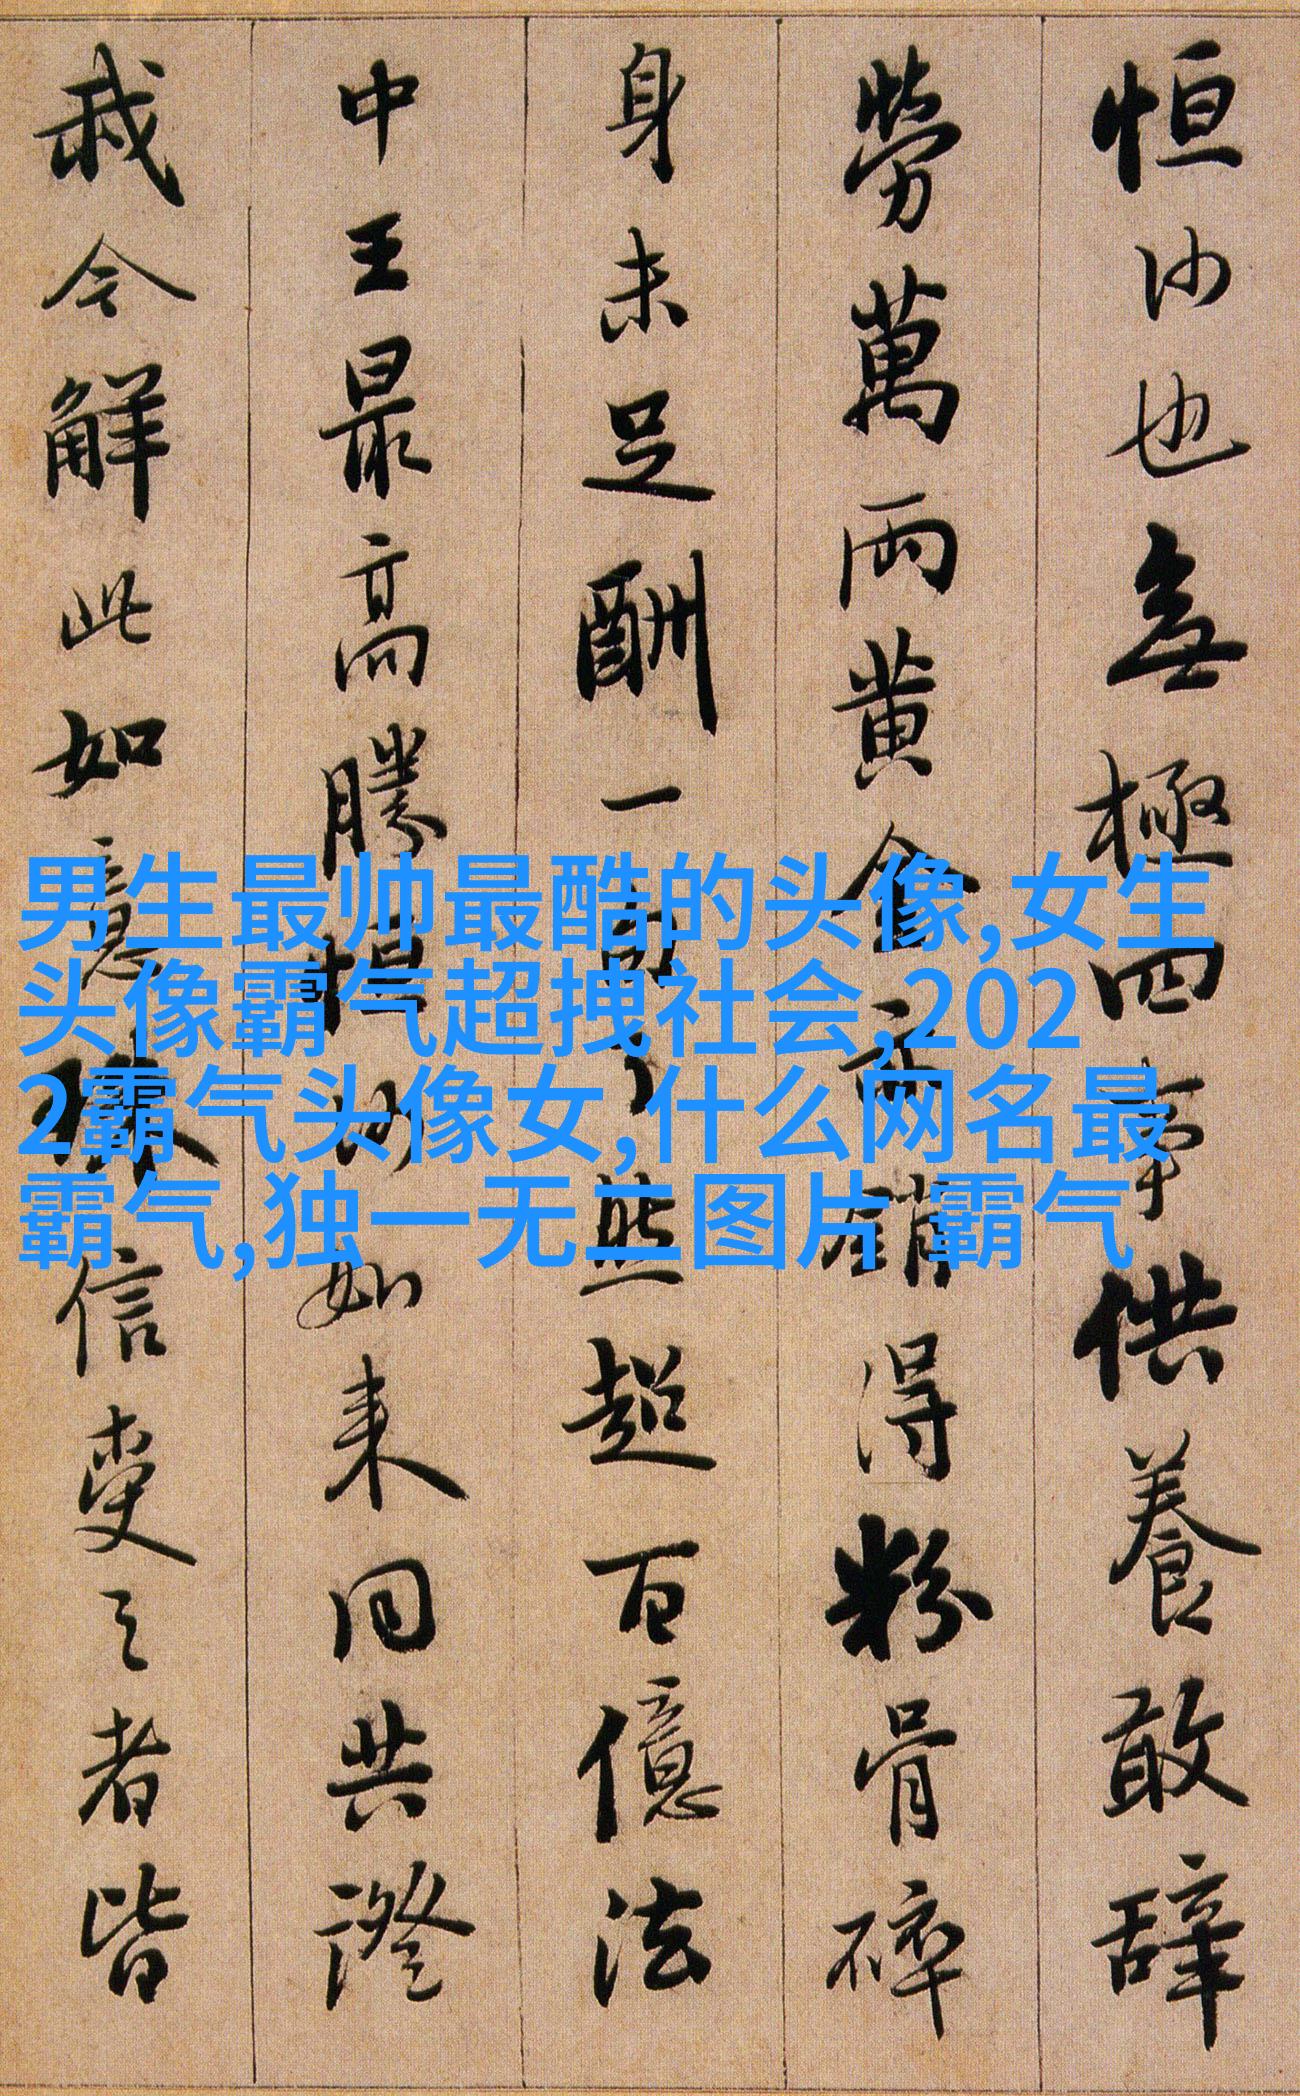 恒沙也無極四事供養敢辞
勞萬兩黄金亦銷得粉骨碎
身未足酬一句了然超百億法
中王最高勝恒沙如来同共證
我今解此如意珠信受之者皆
男生最帅最酷的头像,女生
头像霸气超拽社会,202
2霸气头像女,什么网名最
霸气,独一无二图片 霸气